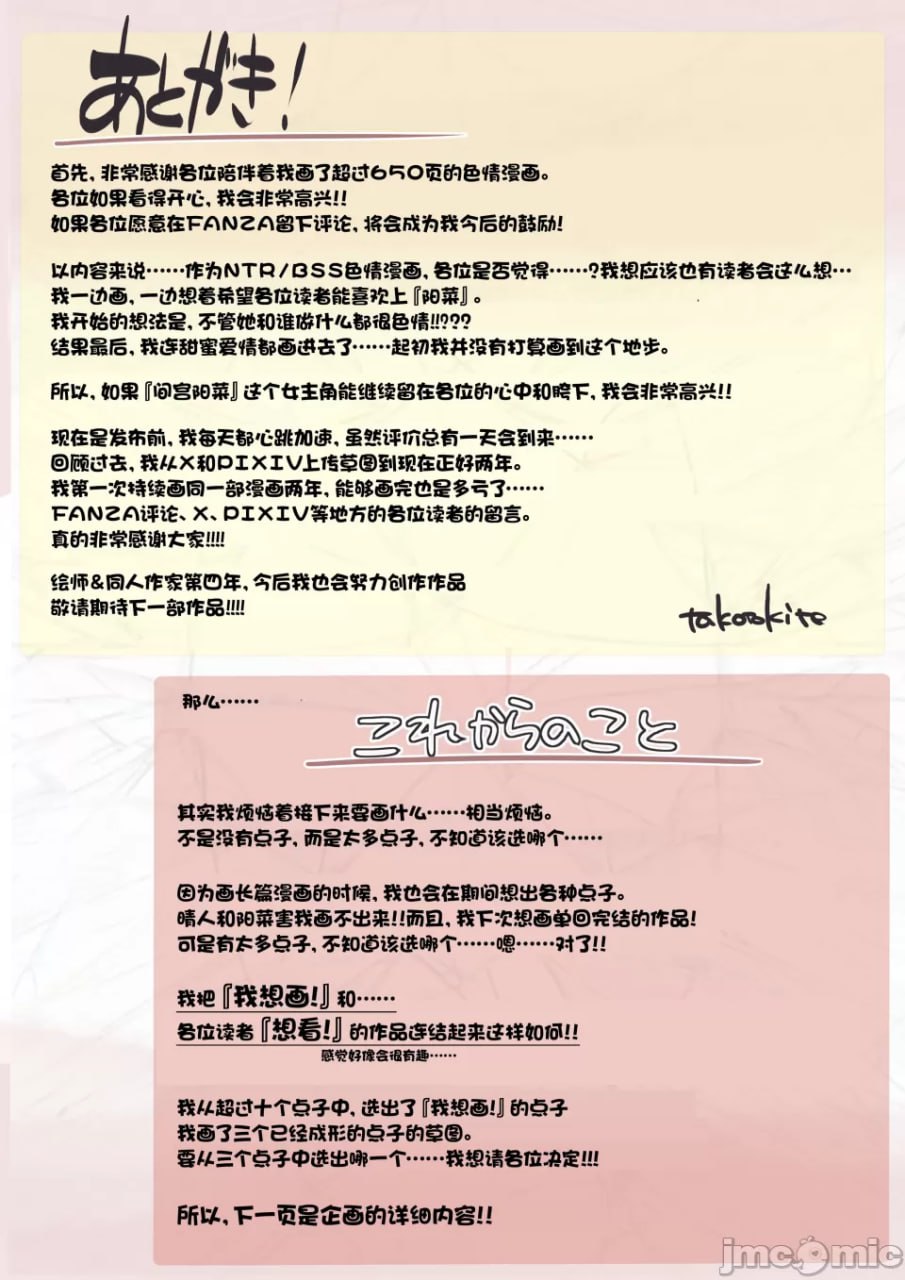 あとがき！
首先，非常感谢各位陪伴着我画了超过650页的色情漫画。
各位如果看得开心，我会非常高兴!!
如果各位愿意在FANZA留下评论，将会成为我今后的鼓励!
以内容来说……作为NTR/BSS色情漫画，各位是否觉得……?我想应该也有读者会这么想…
我一边画，一边想着希望各位读者能喜欢上『阳菜』。
我开始的想法是，不管她和谁做什么都很色情!!???
结果最后，我连甜蜜爱情都画进去了……起初我并没有打算画到这个地步。
所以，如果『间宫阳菜』这个女主角能继续留在各位的心中和胯下，我会非常高兴!!
现在是发布前，我每天都心跳加速，虽然评价总有一天会到来……
回顾过去，我从X和PIXIV上传草图到现在正好两年。
我第一次持续画同一部漫画两年，能够画完也是多亏了……
FANZA评论、X、PIXIV等地方的各位读者的留言。
真的非常感谢大家!!!!
绘师&同人作家第四年，今后我也会努力创作作品
敬请期待下一部作品!!!!
takookite
那么……
これからのこと
其实我烦恼着接下来要画什么……相当烦恼。
不是没有点子，而是太多点子，不知道该选哪个……
因为画长篇漫画的时候，我也会在期间想出各种点子。
晴人和阳菜害我画不出来!!而且，我下次想画单回完结的作品!
可是有太多点子，不知道该选哪个……嗯……对了!!
我把『我想画!』和……
各位读者『想看!』的作品连结起来这样如何!!
感觉好像会很有趣……
我从超过十个点子中，选出了『我想画!』的点子
我画了三个已经成形的点子的草图。
要从三个点子中选出哪一个……我想请各位决定!!!
所以，下一页是企画的详细内容!!
jmcomic